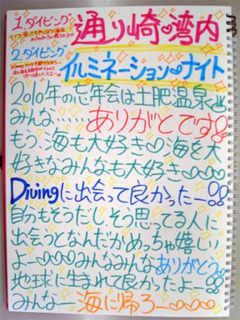 1.ダイビング
通り崎♡湾内
2.ダイビング
イルミネーション♡ナイト
2010年の忘年会は土肥温泉
みんな……ありがとです!!
もう、海も大好き♡海を大
好きなみんなも大好き
Divingに出会って良かったー
自分もそうだしそう思ってる人に
出会うとなんだかめっちゃ嬉しい
よ…みんなみんなありがとう
地球に生まれて良かったよー
みんなー 海に帰ろー